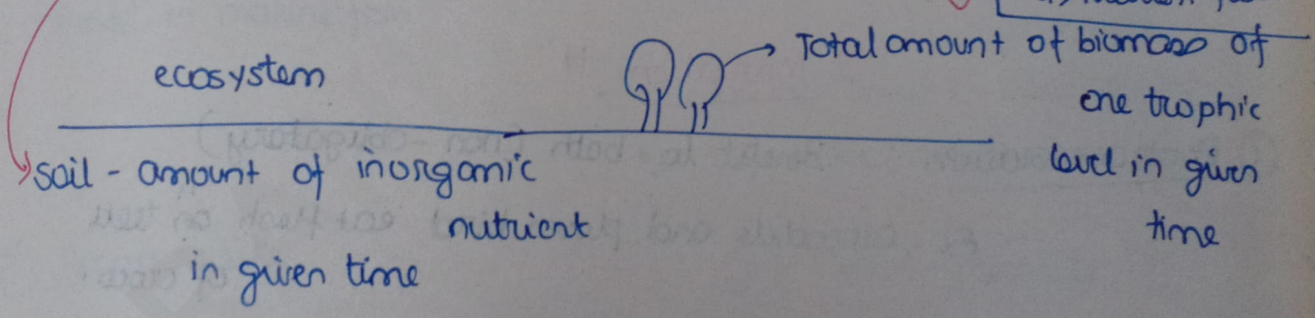 ecosystem
Total amount of biomass of
one trophic
level in given
time
soil - amount of inorganic
nutrient
in given time